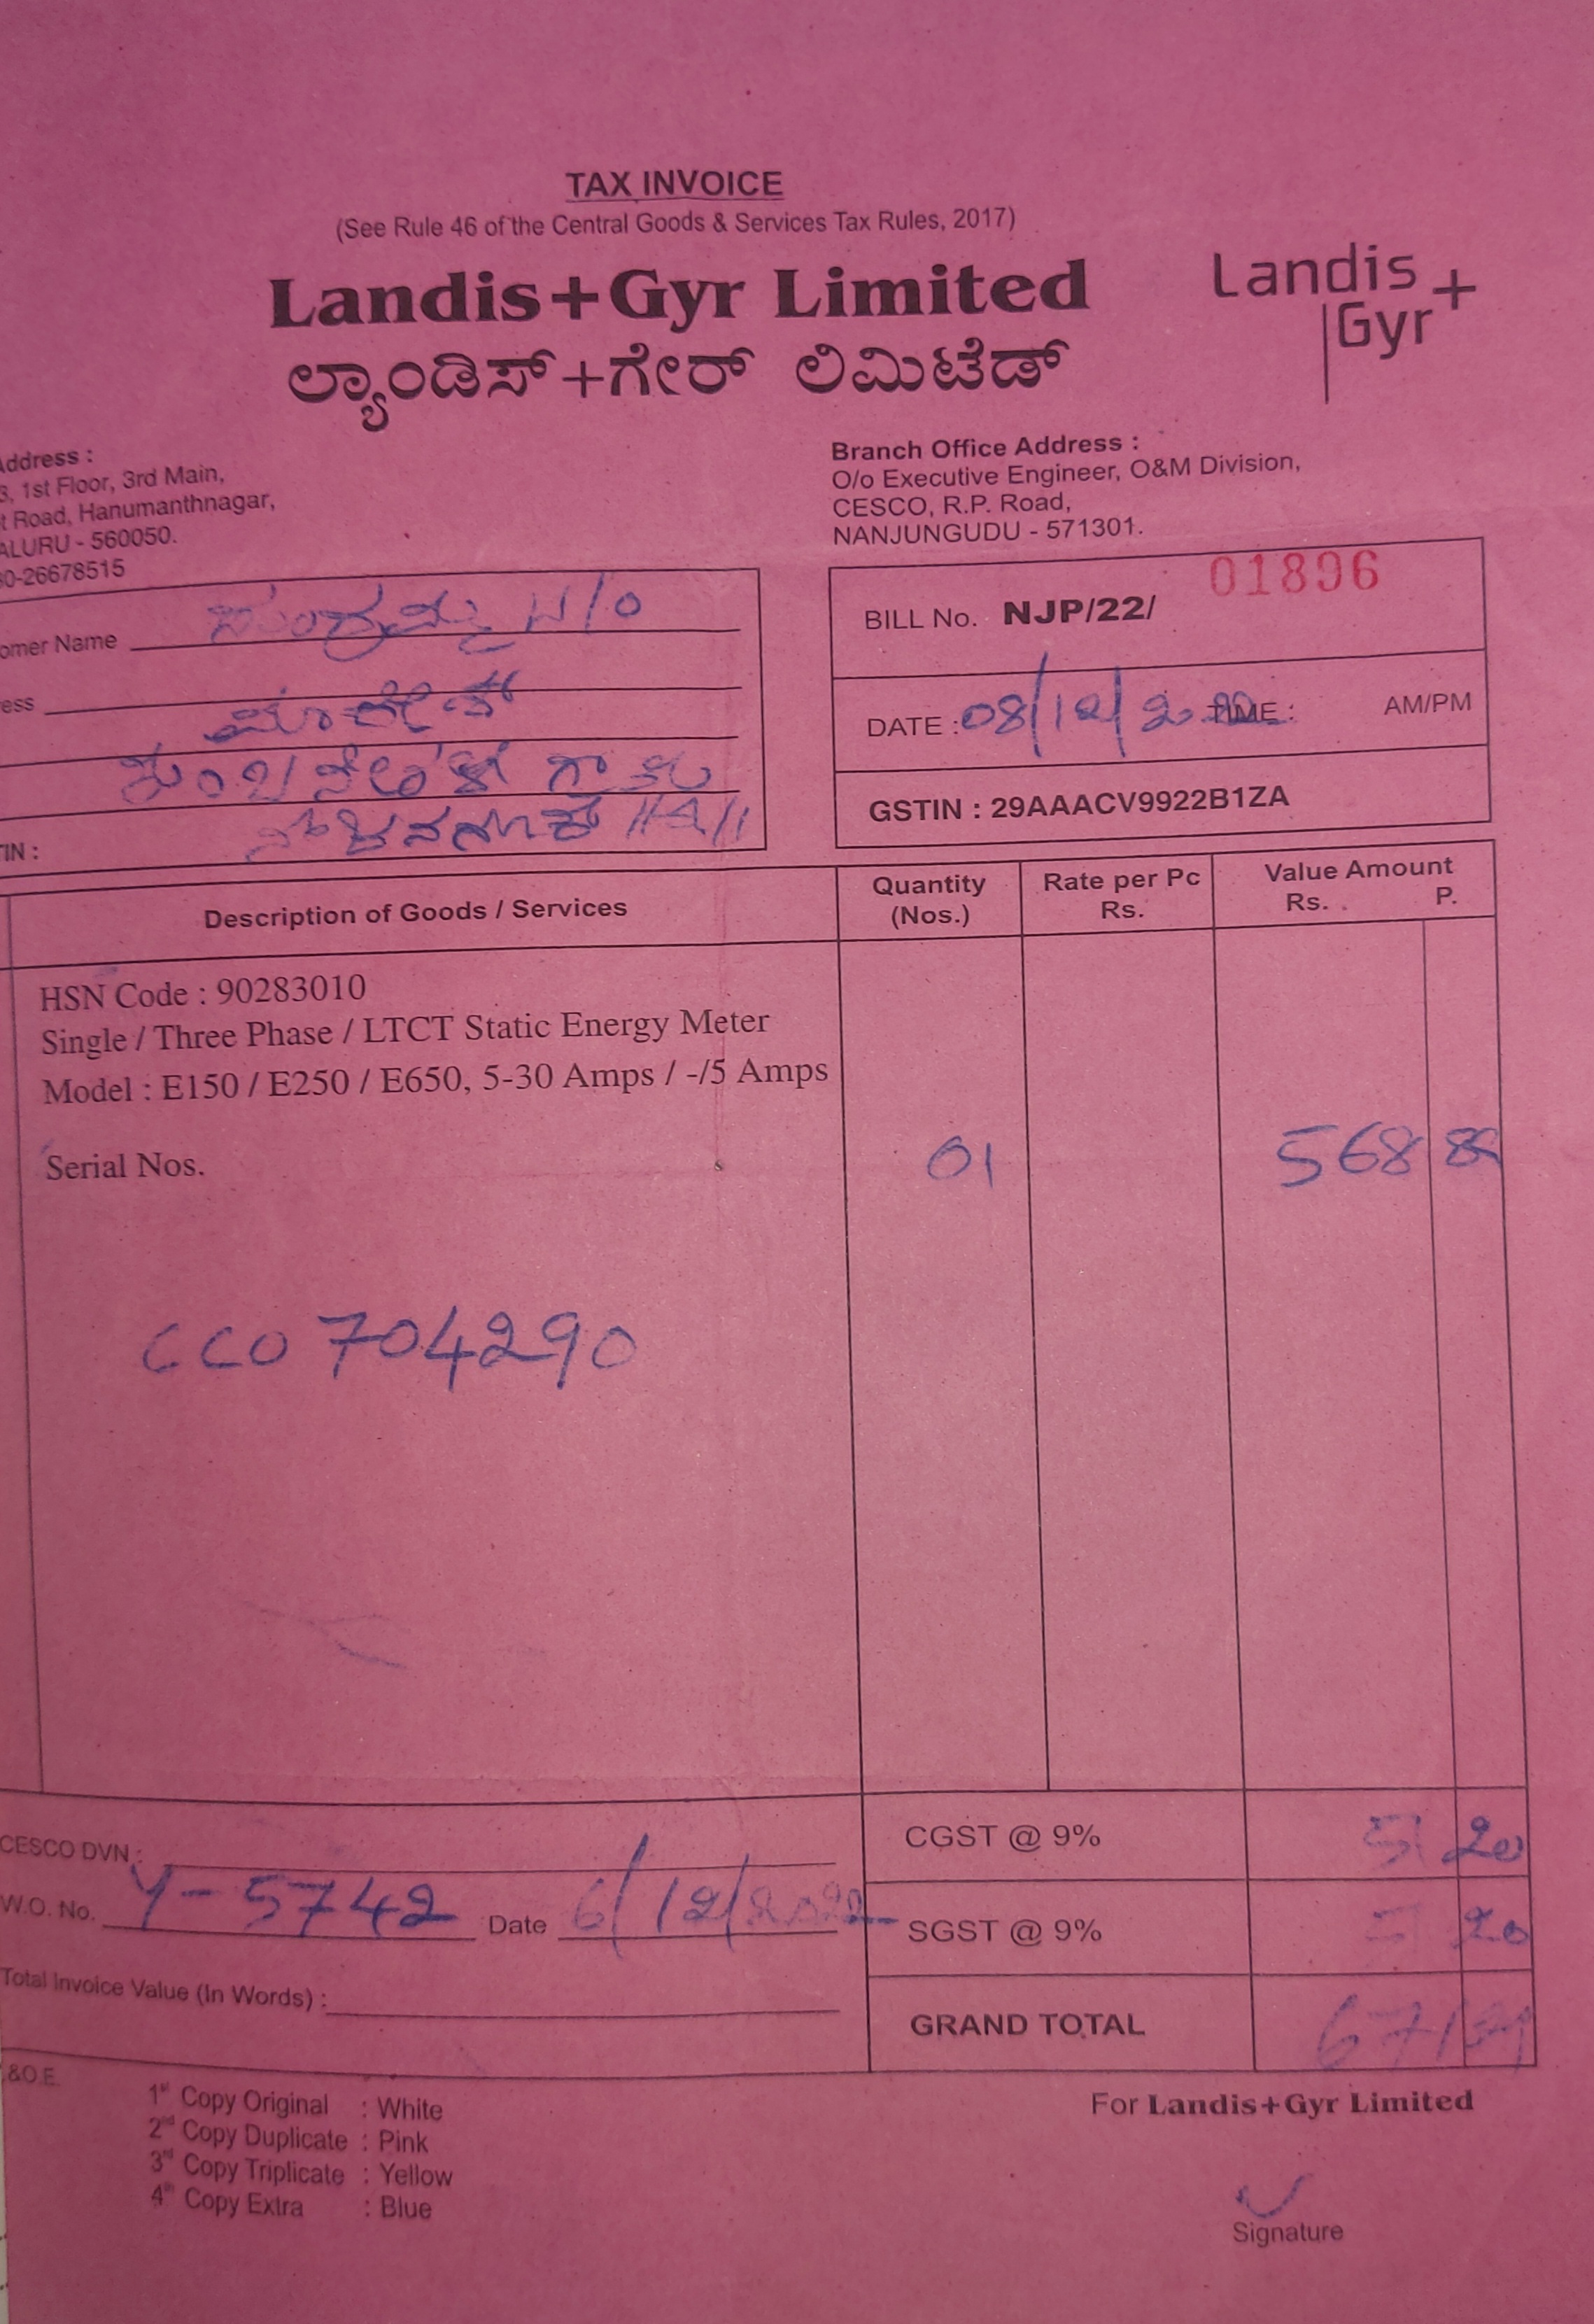 TAX INVOICE
(See Rule 46 of the Central Goods & Services Tax Rules, 2017)
Landis+Gyr Limited
ಲ್ಯಾಂಡಿಸ್+ಗೇರ್ ಲಿಮಿಟೆಡ್
Landis
Gyr+
Address :
3, 1st Floor, 3rd Main,
t Road, Hanumanthnagar,
ALURU - 560050.
80-26678515
Branch Office Address :
O/o Executive Engineer, O&M Division,
CESCO, R.P. Road,
NANJUNGUDU - 571301.
omer Name W/O
ess
TIN :
BILL No. NJP/22/ 01896
DATE : 08/12/2022 TIME : AM/PM
GSTIN : 29AAACV9922B1ZA
Description of Goods / Services
Quantity
(Nos.)
Rate per Pc
Rs.
Value Amount
Rs. P.
HSN Code : 90283010
Single / Three Phase / LTCT Static Energy Meter
Model : E150 / E250 / E650, 5-30 Amps / -/5 Amps
Serial Nos. 01 568
CC0704290
CESCO DVN :
W.O. No. Y-5742 Date 6/12/2022
Total Invoice Value (In Words) :
CGST @ 9% 51 20
SGST @ 9% 20
GRAND TOTAL 671
&O.E.
1st Copy Original : White
2nd Copy Duplicate : Pink
3rd Copy Triplicate : Yellow
4th Copy Extra : Blue
For Landis+Gyr Limited
Signature